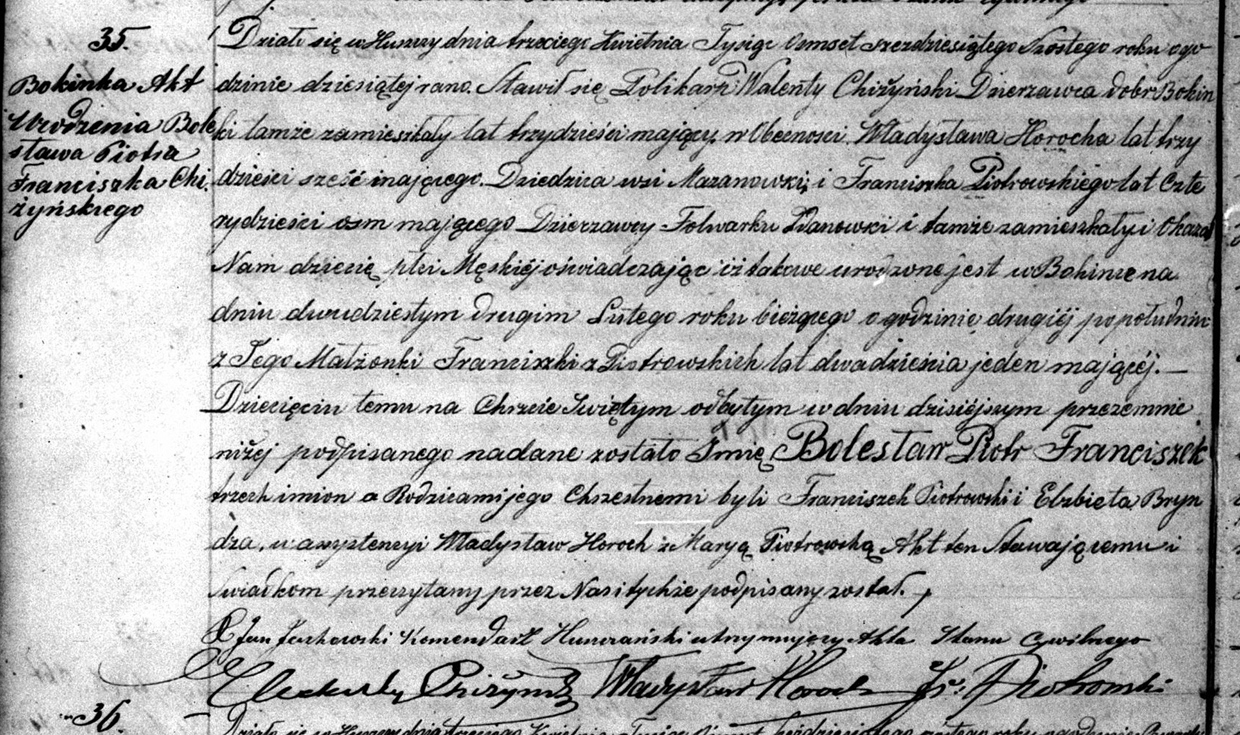 35.
Bokinka Akt
Urodzenia Bole
sława Piotra
Franciszka Chi.
żyńskiego
Działo się w Huszczy dnia trzeciego Kwietnia Tysiąc Ośmset szezdziesiątego szostego roku ogo
dzinie dziesiątej rano. Stawił się Polikarp Walenty Chiżyński Dzierzawca dobr Bokin
ki tamże zamieszkały lat trzydzieści mający, w Obecności Władysława Horocha lat trzy
dzieści sześć mającego Dziedzica wsi Mazanowski i Franciszka Piotrowskiego lat Czte
rydzieści osm mającego Dzierzawcy Folwarku i tamże zamieszkały i Okazał
Nam dziecię płci Męskiéj oświadczając iż takowe urodzone jest w Bokince na
dniu dwudziestym drugim Lutego roku bieżącego o godzinie drugiéj po południu
z Jego Małżonki Franciszki z Piotrowskich lat dwadzieścia jeden mającéj. —
Dziecięciu temu na Chrzcie Świętym odbytym w dniu dzisiéjszym przezemnie
niżéj podpisanego nadane zostało Imię Bolesław Piotr Franciszek
trzech imion a Rodzicami jego Chrzestnemi byli Franciszek Piotrowski i Elżbieta Bryn
dza, w assystencyi Władysław Horoch z Maryą Piotrowską Akt ten Stawającemu i
Świadkom przeczytany przez Nas i tychże podpisany został.
X Jan Komendarz Huszczański utrzymujący Akta Stanu Cywilnego
Chiżyński Władysław Horoch Fr: Piotrowski
36.
Działo się w Huszczy dnia trzeciego Kwietnia Tysiąc